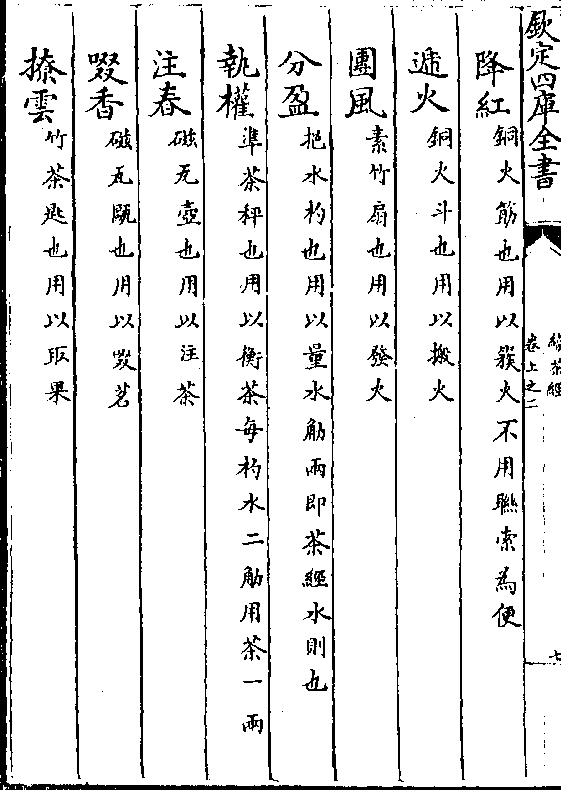 欽定四庫全書
續茶經
卷上之二
七
降紅
銅火筯也用以簇火不用聯索為便
遞火
銅火斗也用以搬火
團風
素竹扇也用以發火
分盈
挹水杓也用以量水觔兩即茶經水則也
執權
準茶秤也用以衡茶每杓水二觔用茶一兩
注春
磁瓦壺也用以注茶
啜香
磁瓦甌也用以啜茗
撩雲
竹茶匙也用以取果